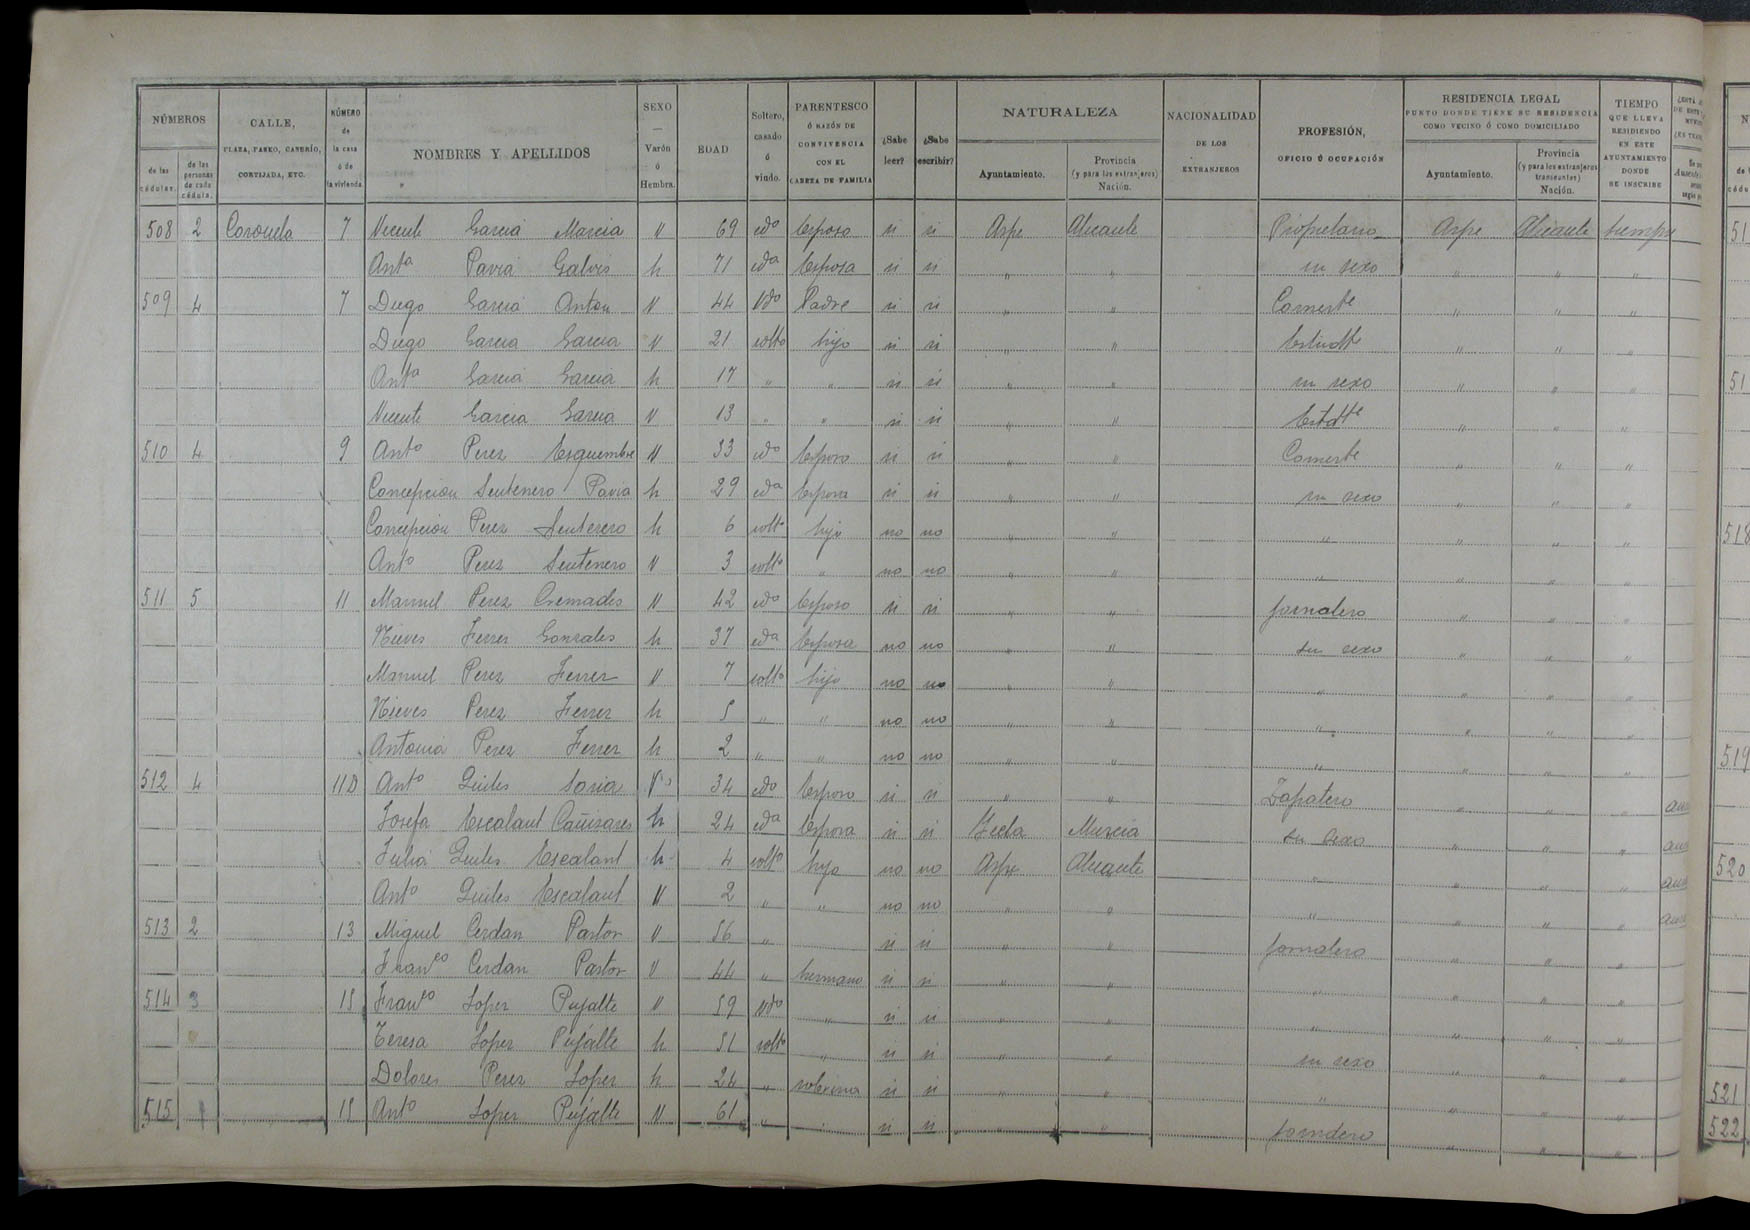 NÚMEROS | CALLE, PLAZA, PASEO, CASERÍO, CORTIJADA, ETC. | NÚMERO de la casa ó de la vivienda | NOMBRES Y APELLIDOS | SEXO — Varón ó Hembra. | EDAD | Soltero, casado ó viudo. | PARENTESCO Ó RAZÓN DE CONVIVENCIA CON EL CABEZA DE FAMILIA | ¿Sabe leer? | ¿Sabe escribir? | NATURALEZA | NACIONALIDAD DE LOS EXTRANJEROS | PROFESIÓN, OFICIO Ú OCUPACIÓN | RESIDENCIA LEGAL PUNTO DONDE TIENE SU RESIDENCIA COMO VECINO Ó COMO DOMICILIADO | TIEMPO QUE LLEVA RESIDIENDO EN ESTE AYUNTAMIENTO DONDE SE INSCRIBE
de las cédulas. | de las personas de cada cédula. | Ayuntamiento. | Provincia (y para los extranjeros) Nación. | Ayuntamiento. | Provincia (y para los extranjeros transeuntes) Nación.
508 2 7 Vicente Garcia Marcia V 69 cdo Esposo si si Aspe Alicante Propietario Aspe Alicante siempre
Antª Pavia Galvis h 71 cda Esposa si si " " su sexo " " "
509 4 7 Diego Garcia Anton V 44 Vdo Padre si si " " Comerte " " "
Diego Garcia Garcia V 21 soltº hijo si si " " Estudte " " "
Antª Garcia Garcia h 17 " " si si " " su sexo " " "
Vicente Garcia Garcia V 13 " " si si " " Estdte " " "
510 4 9 Antº Perez Esquembre V 33 cdo Esposo si si " " Comerte " " "
Concepcion Sentenero Pavia h 29 cda Esposa si si " " su sexo " " "
Concepcion Perez Sentenero h 6 soltº hijo no no " " " " " "
Antº Perez Sentenero V 3 soltº " no no " " " " " "
511 5 11 Manuel Perez Cremades V 42 cdo Esposo si si " " jornalero " " "
Nieves Ferrer Gonzales h 37 cda Esposa no no " " su sexo " " "
Manuel Perez Ferrer V 7 soltº hijo no no " " " " " "
Nieves Perez Ferrer h 5 " " no no " " " " " "
Antonia Perez Ferrer h 2 " " no no " " " " " "
512 4 11D Antº Quiles Soria V 34 cdo Esposo si si " " Zapatero " " "
Josefa Escalant Cañizares h 24 cda Esposa si si Yecla Murcia su sexo " " "
Julia Quiles Escalant h 4 soltº hijo no no Aspe Alicante " " " "
Antº Quiles Escalant V 2 " " no no " " " " " "
513 2 13 Miguel Cerdan Pastor V 56 " si si " " jornalero " " "
Franco Cerdan Pastor V 44 " hermano si si " " " " " "
514 3 15 Franco Lopez Pujalte V 59 Vdo " si si " " " " " "
Teresa Lopez Pujalte h 51 soltº " si si " " su sexo " " "
Dolores Perez Lopez h 24 " sobrina si si " " " " " "
515 1 15 Antº Lopez Pujalte V 61 " si si " " jornalero " " "
518
519
520
521
522